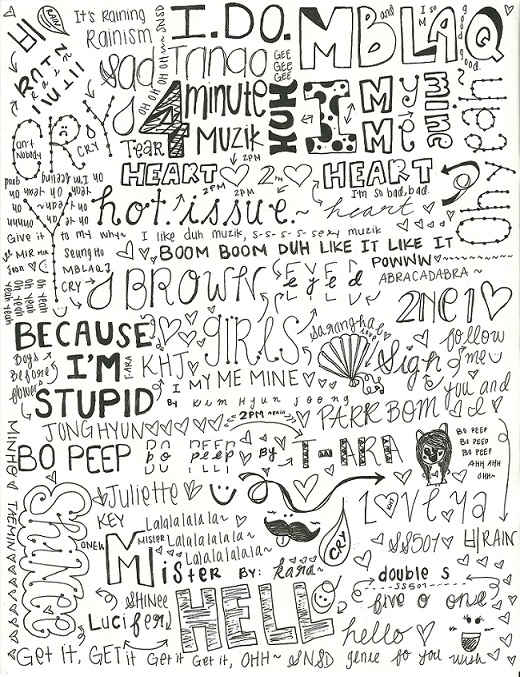 It's Raining
Rainism
RAIN
SNSD
I. DO.
MBLAQ
and
I'm
so
good
good.
Sad Tango
OH OH OH OH~
GEE
GEE
GEE
4minute
MUZIK
HUH
I My
Me
mine
CRY
can't
Nobody
CRY
Tear
HEART 2PM HEART
2PM 2PM
I'm so bad, bad.
hot. issue.~ heart
Give it to my why~ I like duh muzik, s-s-s-s-s-sexy muzik
BOOM BOOM DUH LIKE IT LIKE IT
MIR
Seungho
Joon
MBLAQ
CRY
POWWW~
ABRACADABRA~
BROWN EYED
GIRLS
Saranghae
2NE1
BECAUSE
I'M
STUPID
Boys
Before
flowers
T-ARA
KHJ
I MY ME MINE
By Kim Hyun Joong
Sigh
follow
me
you and
I
2PM again
PARK BOM
JONGHYUN
BO PEEP
bo peep
By T-ARA
BO PEEP
BO PEEP
BO PEEP
AHH AHH
OHH~
MINHO
TAEMIN
SHINee
Juliette
KEY
ONEW
Lalalalalala~
Lalalalalala~
Lalalalalala~
MISTER
Mister BY: kara~
CRY
Love ya
SS501
RAIN
double s
SS501
five o one
SHINee
Lucifer
HELL
hello
Get it, GET it Get it Get it, OHH~ SNSD genie for you wish